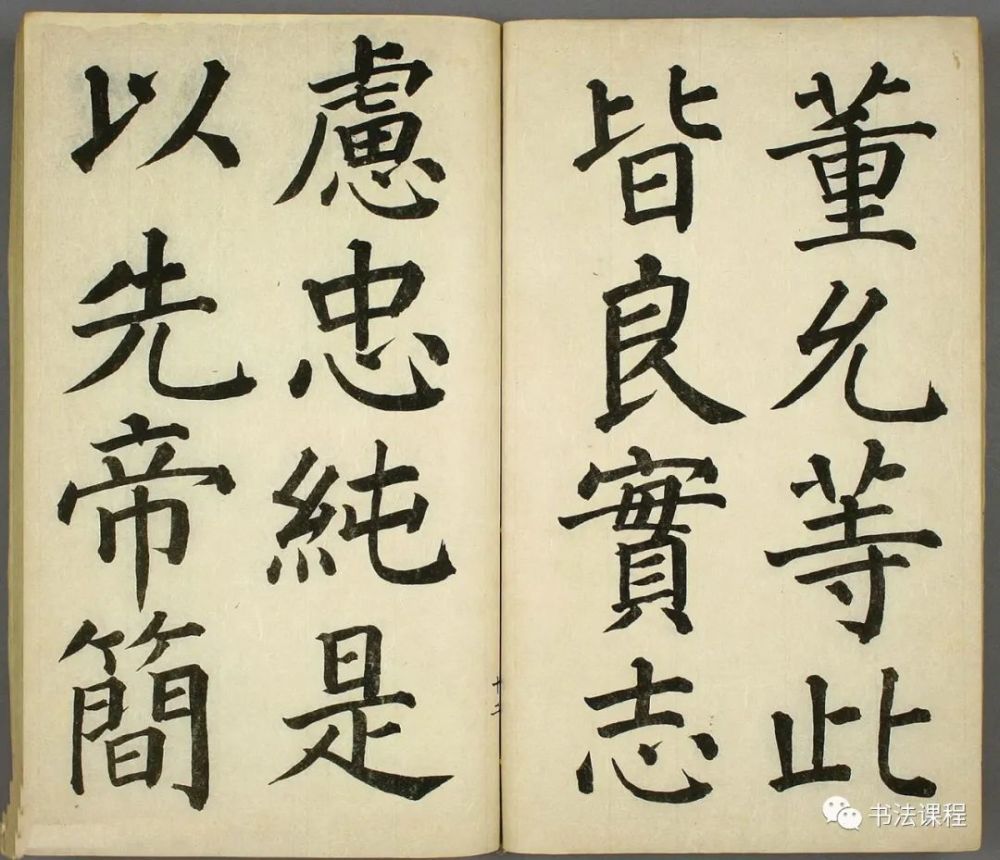 董允等此
皆良實志
慮忠純是
以先帝簡
十二
书法课程